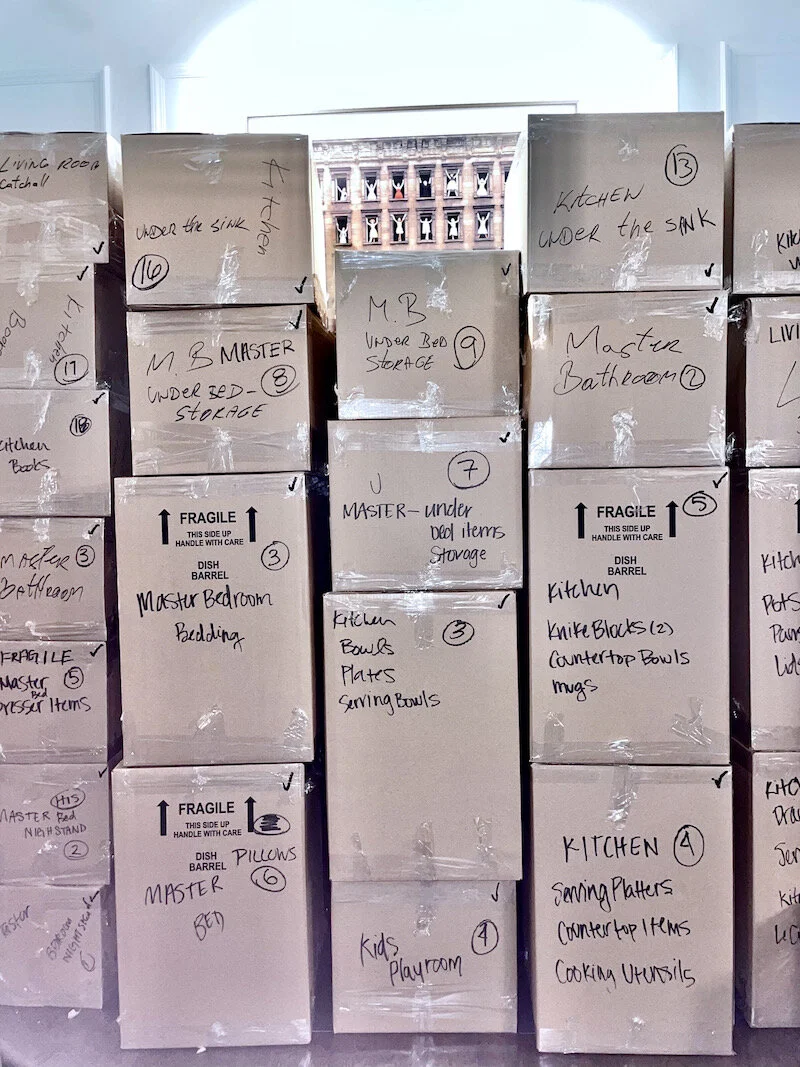 LIVING ROOM
Catchall
Kitchen
17
Kitchen
Books
18
MASTER
BATHROOM
3
FRAGILE
Master
Bed
Dresser Items
5
HIS
MASTER Bed
NIGHSTAND
2
BEDROOM
1
Kitchen
UNDER the SINK
16
M.B MASTER
UNDER BED-
STORAGE
8
FRAGILE
THIS SIDE UP
HANDLE WITH CARE
DISH
BARREL
3
Master Bedroom
Bedding
FRAGILE
THIS SIDE UP
HANDLE WITH CARE
DISH
BARREL
PILLOWS
6
MASTER
BED
M.B
UNDER BED
STORAGE
9
7
MASTER- under
bed items
Storage
Kitchen
3
Bowls
Plates
Serving Bowls
Kids
Playroom
4
13
KITCHEN
UNDER the SINK
Master
Bathroom 2
FRAGILE
5
THIS SIDE UP
HANDLE WITH CARE
DISH
BARREL
Kitchen
Knike Blocks (2)
Countertop Bowls
mugs
KITCHEN 4
Serving Platters
Countertop Items
Cooking Utensils
LIVI
Kitch
Pots